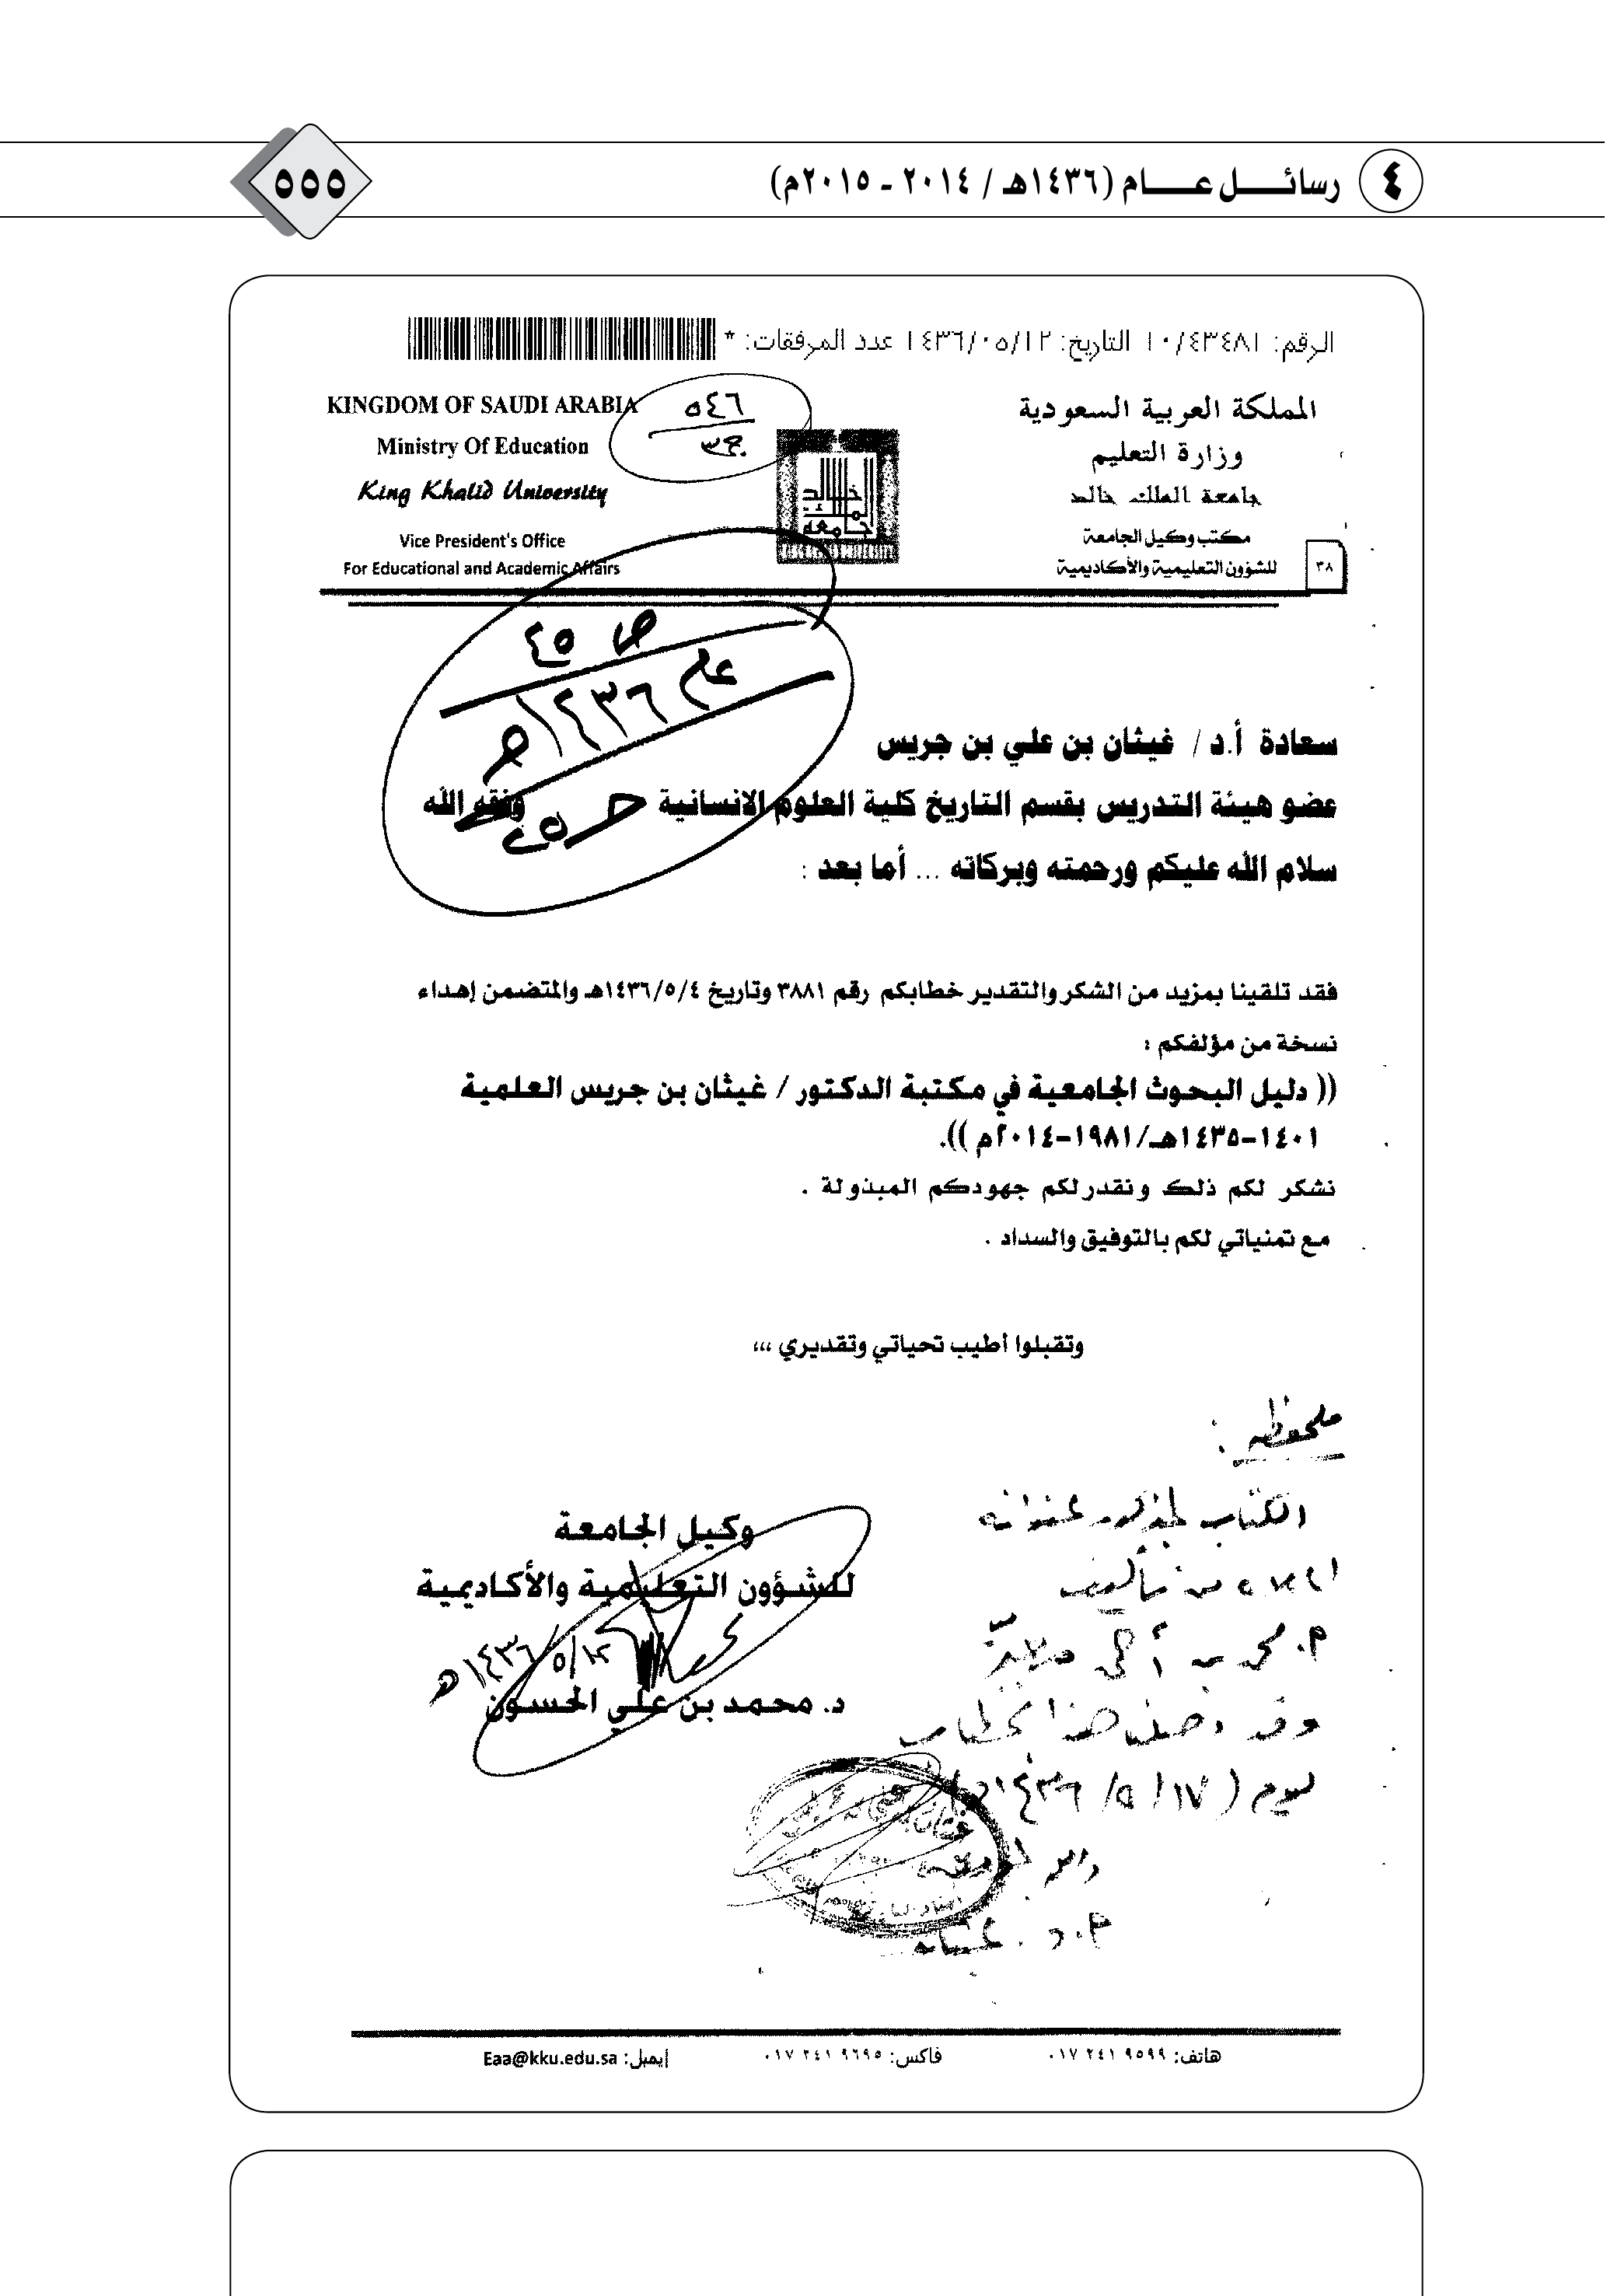 ٤ رسائل عام (١٤٣٦هـ / ٢٠١٤ - ٢٠١٥م)
٥٥٥
الرقم: ١٠/٤٣٤٨١ التاريخ: ١٤٣٦/٠٥/١٢ عدد المرفقات: *
المملكة العربية السعودية
وزارة التعليم
جامعة الملك خالد
مكتب وكيل الجامعة
للشؤون التعليمية والأكاديمية
٣٨
KINGDOM OF SAUDI ARABIA
Ministry Of Education
King Khalid University
Vice President's Office
For Educational and Academic Affairs
٥٤٦
ج٣
ص ٤٥
عام ١٤٣٦هـ
سعادة أ.د / غيثان بن علي بن جريس
عضو هيئة التدريس بقسم التاريخ كلية العلوم الانسانية وفقه الله
سلام الله عليكم ورحمته وبركاته ... أما بعد :
فقد تلقينا بمزيد من الشكر والتقدير خطابكم رقم ٣٨٨١ وتاريخ ١٤٣٦/٥/٤هـ والمتضمن إهداء
نسخة من مؤلفكم :
(( دليل البحوث الجامعية في مكتبة الدكتور / غيثان بن جريس العلمية
١٤٠١-١٤٣٥هـ/١٩٨١-٢٠١٤م )).
نشكر لكم ذلك ونقدر لكم جهودكم المبذولة .
مع تمنياتي لكم بالتوفيق والسداد .
وتقبلوا أطيب تحياتي وتقديري ،،،
وكيل الجامعة
للشؤون التعليمية والأكاديمية
١٤٣٦/٥/١٢هـ
د. محمد بن علي الحسون
ملحوظة :
الكتاب المذكور عنوانه
أعلاه من تأليف
أ. محمد بن أحمد
وقد وصلنا هذا الخطاب
يوم (١٧/٥/١٤٣٦هـ)
أ.د. غيثان
هاتف: ٠١٧ ٢٤١ ٩٥٩٩ فاكس: ٠١٧ ٢٤١ ٩٦٩٥ إيميل: Eaa@kku.edu.sa